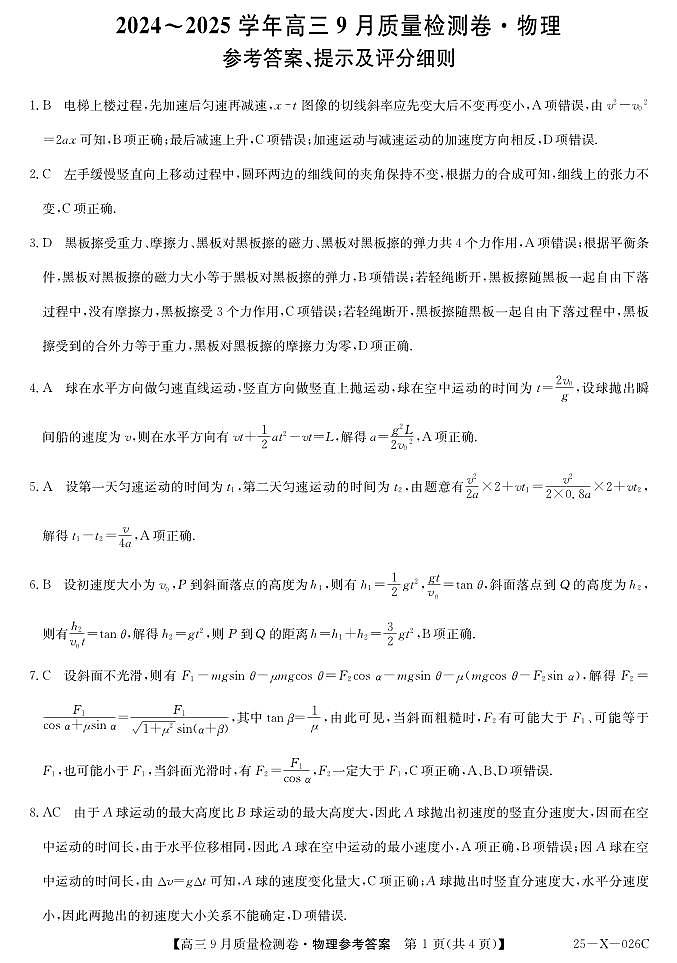 2024～2025 学年高三 9 月质量检测卷·物理
参考答案、提示及评分细则
1. B 电梯上楼过程,先加速后匀速再减速,x－t 图像的切线斜率应先变大后不变再变小,A 项错误,由 v²－v₀²
＝2ax 可知,B 项正确;最后减速上升,C 项错误;加速运动与减速运动的加速度方向相反,D 项错误.
2. C 左手缓慢竖直向上移动过程中,圆环两边的细线间的夹角保持不变,根据力的合成可知,细线上的张力不
变,C 项正确.
3. D 黑板擦受重力、摩擦力、黑板对黑板擦的磁力、黑板对黑板擦的弹力共 4 个力作用,A 项错误;根据平衡条
件,黑板对黑板擦的磁力大小等于黑板对黑板擦的弹力,B 项错误;若轻绳断开,黑板擦随黑板一起自由下落
过程中,没有摩擦力,黑板擦受 3 个力作用,C 项错误;若轻绳断开,黑板擦随黑板一起自由下落过程中,黑板
擦受到的合外力等于重力,黑板对黑板擦的摩擦力为零,D 项正确.
4. A 球在水平方向做匀速直线运动,竖直方向做竖直上抛运动,球在空中运动的时间为 t＝2v₀/g,设球抛出瞬
间船的速度为 v,则在水平方向有 vt＋1/2 at²－vt＝L,解得 a＝g²L/2v₀²,A 项正确.
5. A 设第一天匀速运动的时间为 t₁,第二天匀速运动的时间为 t₂,由题意有 v²/2a×2＋vt₁＝v²/(2×0.8a)×2＋vt₂,
解得 t₁－t₂＝v/4a,A 项正确.
6. B 设初速度大小为 v₀,P 到斜面落点的高度为 h₁,则有 h₁＝1/2 gt²,gt/v₀＝tan θ,斜面落点到 Q 的高度为 h₂,
则有 h₂/v₀t＝tan θ,解得 h₂＝gt²,则 P 到 Q 的距离 h＝h₁＋h₂＝3/2 gt²,B 项正确.
7. C 设斜面不光滑,则有 F₁－mgsin θ－μmgcos θ＝F₂cos α－mgsin θ－μ(mgcos θ－F₂sin α),解得 F₂＝
F₁/(cos α＋μsin α)＝F₁/(√(1＋μ²) sin(α＋β)),其中 tan β＝1/μ,由此可见,当斜面粗糙时,F₂ 有可能大于 F₁、可能等于
F₁,也可能小于 F₁,当斜面光滑时,有 F₂＝F₁/cos α,F₂ 一定大于 F₁,C 项正确,A、B、D 项错误.
8. AC 由于 A 球运动的最大高度比 B 球运动的最大高度大,因此 A 球抛出初速度的竖直分速度大,因而在空
中运动的时间长,由于水平位移相同,因此 A 球在空中运动的最小速度小,A 项正确,B 项错误;因 A 球在空
中运动的时间长,由 Δv＝gΔt 可知,A 球的速度变化量大,C 项正确;A 球抛出时竖直分速度大,水平分速度
小,因此两抛出的初速度大小关系不能确定,D 项错误.
【高三 9 月质量检测卷·物理参考答案 第 1 页(共 4 页)】 25－X－026C